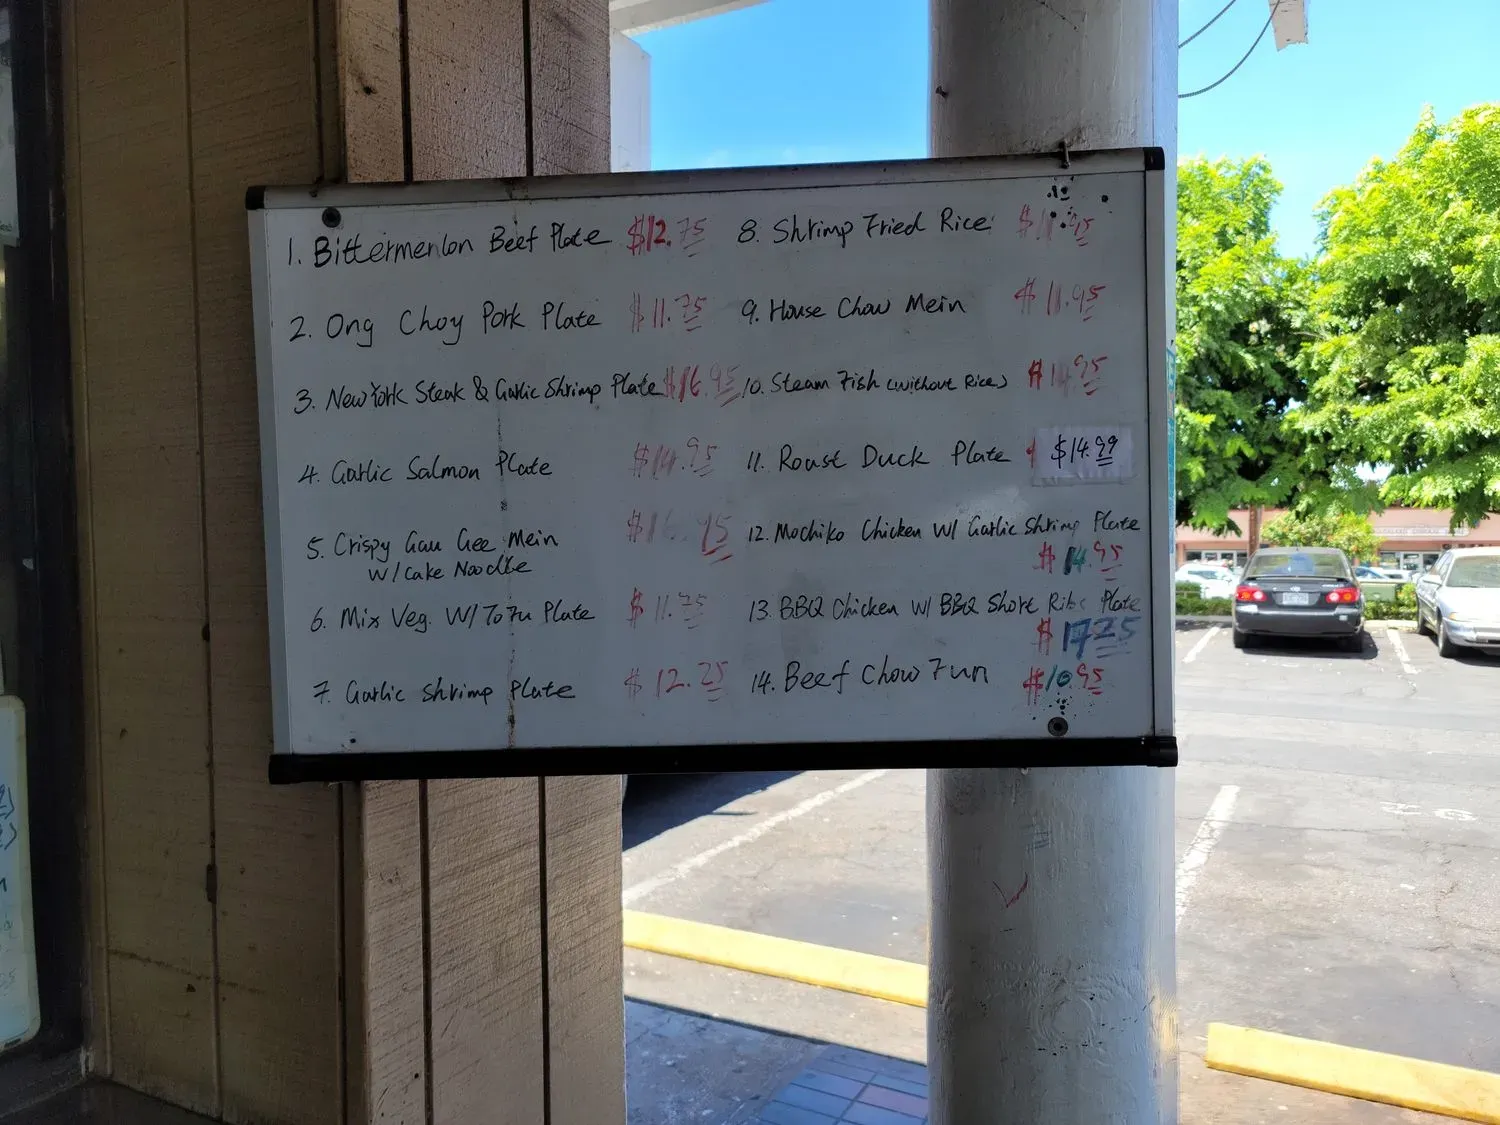 1. Bittermenlon Beef Plate $12.75
2. Ong Choy Pork Plate $11.75
3. New York Steak & Garlic Shrimp Plate $16.95
4. Garlic Salmon Plate $14.95
5. Crispy Gau Gee Mein
W/Cake Noodle
6. Mix Veg. W/Tofu Plate $11.75
7. Garlic Shrimp Plate $12.25
8. Shrimp Fried Rice $11.95
9. House Chow Mein $11.95
10. Steam Fish (without Rice) $14.95
11. Roast Duck Plate $14.99
12. Mochiko Chicken W/ Garlic Shrimp Plate
$14.95
13. BBQ Chicken W/ BBQ Short Ribs Plate
$17.25
14. Beef Chow Fun $10.95